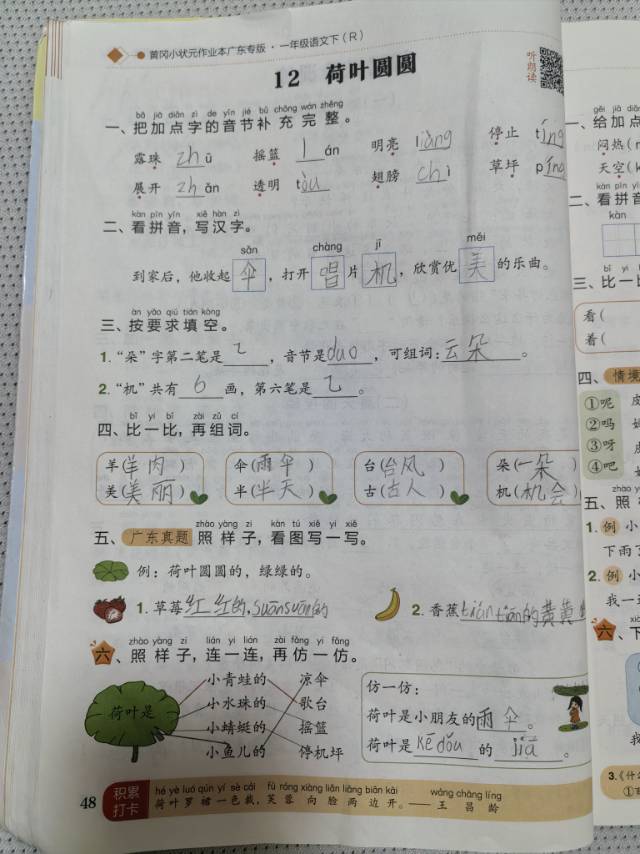 黄冈小状元作业本广东专版·一年级语文下(R)
听朗读
12 荷叶圆圆
bǎ jiā diǎn zì de yīn jié bǔ chōng wán zhěng
一、把加点字的音节补充完整。
露珠 zhū 摇篮 lán 明亮 liàng 停止 tíng
展开 zhǎn 透明 tòu 翅膀 chì 草坪 píng
kàn pīn yīn xiě hàn zì
二、看拼音,写汉字。
sǎn chàng jī měi
到家后,他收起伞,打开唱片机,欣赏优美的乐曲。
àn yāo qiú tián kòng
三、按要求填空。
1.“朵”字第二笔是㇈,音节是duo,可组词:云朵。
2.“机”共有6画,第六笔是乙。
bǐ yi bǐ zài zǔ cí
四、比一比,再组词。
羊(羊肉) 伞(雨伞) 台(台风) 朵(一朵)
美(美丽) 半(半天) 古(古人) 机(机会)
zhào yàng zi kàn tú xiě yi xiě
五、广东真题 照样子,看图写一写。
例:荷叶圆圆的,绿绿的。
1.草莓红红的,suānsuān的 2.香蕉tiántián的黄黄
zhào yàng zi lián yi lián zài fǎng yi fǎng
六、照样子,连一连,再仿一仿。
荷叶是
小青蛙的 凉伞
小水珠的 歌台
小蜻蜓的 摇篮
小鱼儿的 停机坪
仿一仿:
荷叶是小朋友的雨伞。
荷叶是kē dǒu的jiā。
48
积累打卡
hé yè luó qún yí sè cái fú róng xiàng liǎn liǎng biān kāi wáng chāng líng
荷叶罗裙一色裁,芙蓉向脸两边开。——王昌龄
一、给加点
闷热(
天空(
kàn pīn yī
二、看拼音
kàn
bǐ yi
三、比一比
看(
着(
四、情境
①呢
②吗
③呀
④吧
zhào y
五、照
1.例 小
下雨
2.例 小
我一
六、下
3.《什么
①